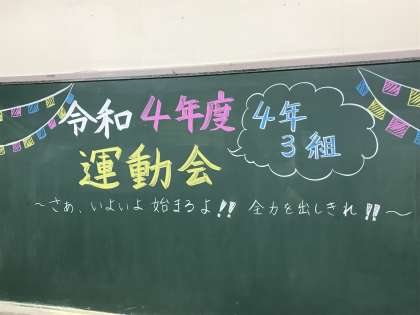 令和4年度
4年
3組
運動会
～さぁ、いよいよ始まるよ!! 全力を出しきれ!!～